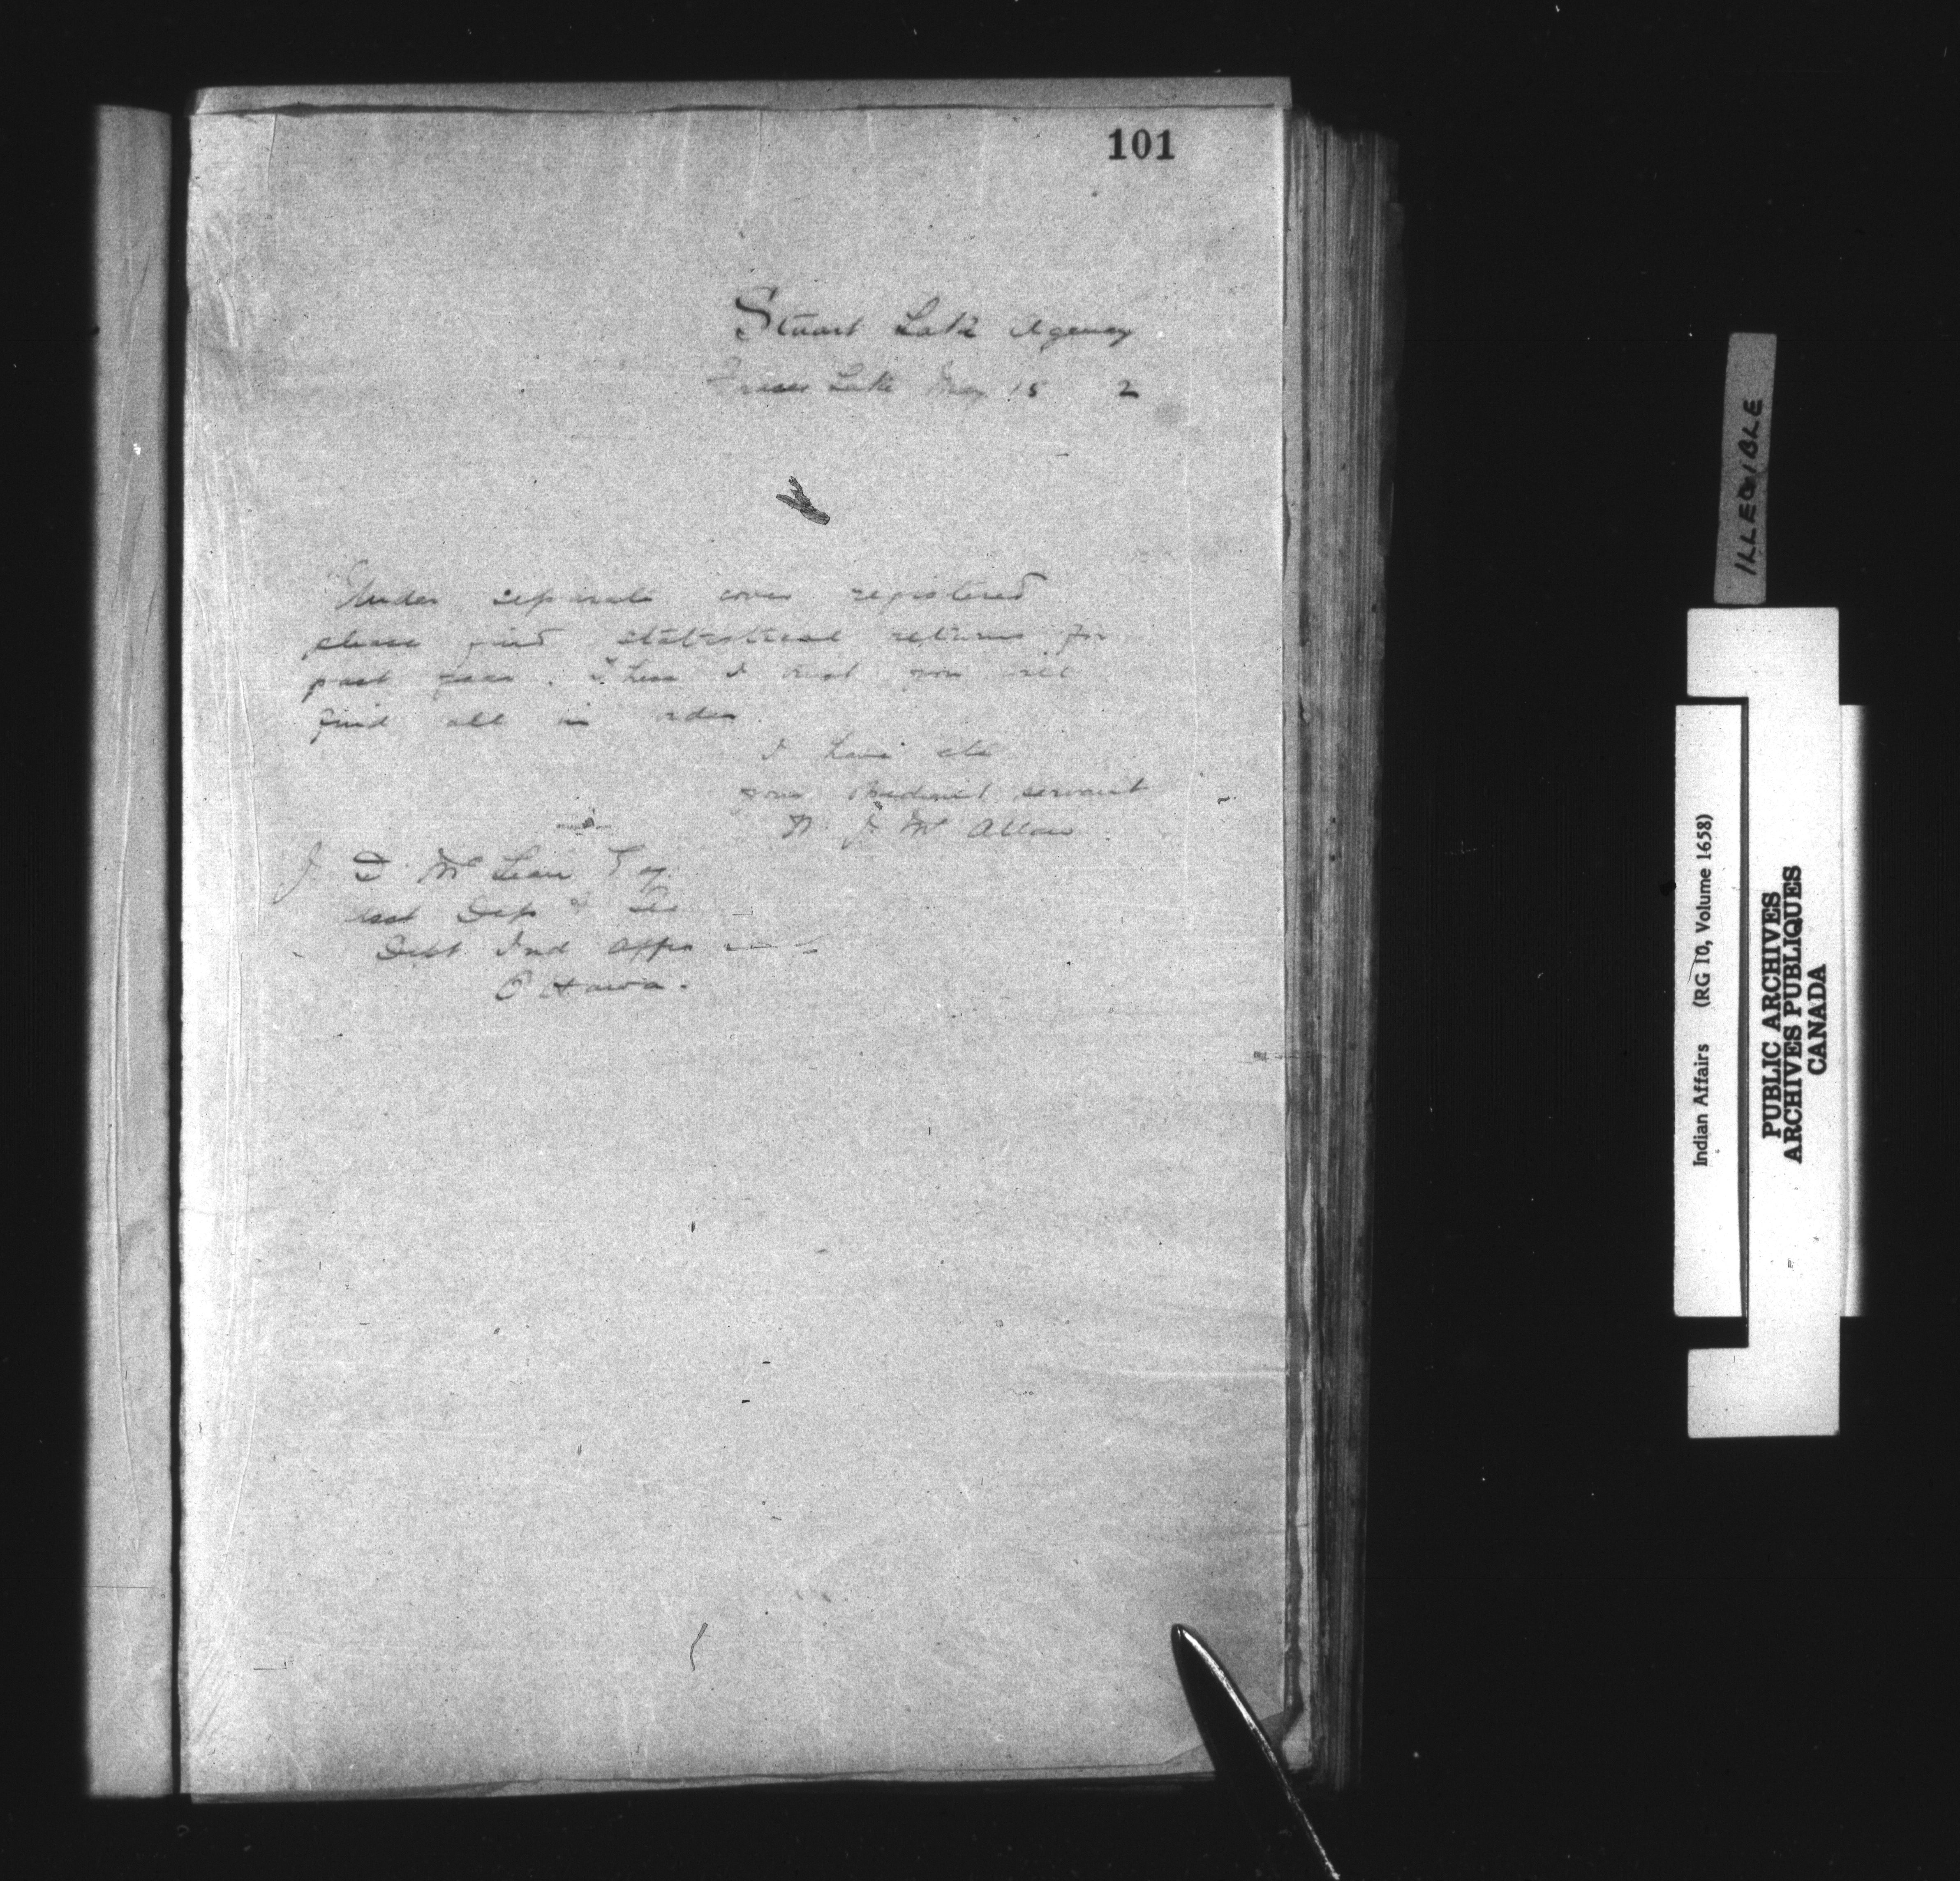 101
Stuart Lake Agency
Fraser Lake May 15 2
Under separate cover registered
please find statistical returns for
past year. These I trust you will
find all in order
I have etc
your obedient servant
W. J. McAllan
J D McLean Esq.
Asst Dep &
Dept Ind Affairs
Ottawa.
ILLEGIBLE
Indian Affairs (RG 10, Volume 1658)
PUBLIC ARCHIVES
ARCHIVES PUBLIQUES
CANADA